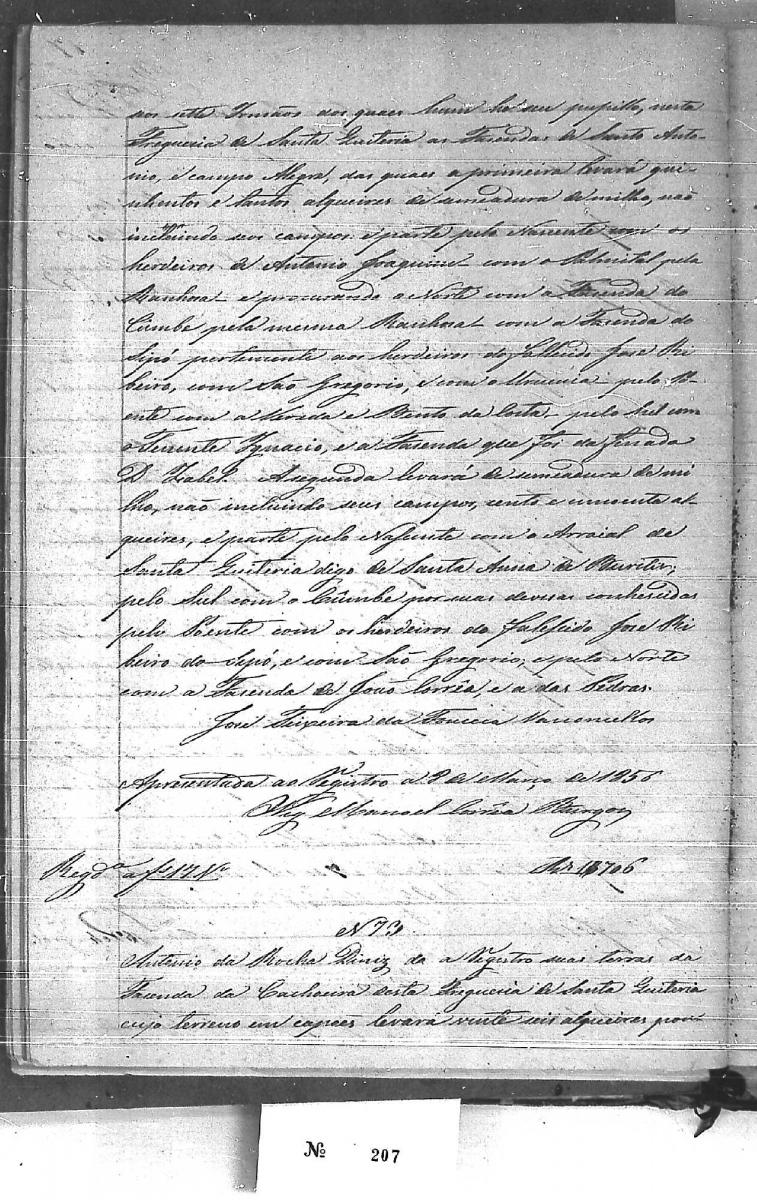 aos sette Irmãos dos quaes hum he seu pupillo, nesta
Freguesia de Santa Quiteria as Fasendas de Santo Anto-
nio, e campo Alegre, das quaes a primeira levará qui-
nhentos e tantos alqueires de semeadura de milho, não
incluindo seos campos e parte pelo Nascente com os
herdeiros de Antonio Joaquim com o pela
e procurando o Norte com a Fasenda do
Cûmbe pela mesma com a Fasenda do
Sipó pertencente aos herdeiros do fallecido José Ri-
beiro, com São Gregorio, e com o pelo Po-
ente com a Vereda e Bento da Costa pelo Sul com
o Tenente Ignacio, e a Fasenda que foi da finada
D. Izabel. A segunda levará de semeadura de mi
lho, não incluindo seus campos, cento e sincoenta al-
queires, e parte pelo Nascente com o Arraial de
Santa Quiteria digo de Santa Anna de Buriti;
pelo Sul com o Cûmbe por suas devisas conhescidas
pelo Poente com os herdeiros do Falescido José Ri
beiro do Sipó, e com São Gregorio, e pelo Norte
com a Fasenda de João Corrêa, e a das Pedras.
José Teixeira da Fonseca Vasconcellos
Apresentada ao Registro a 2 de Março de 1856
Vigr.º Manoel Corrêa
Regd.ª a fs 17 Vº
Nº 73
Antonio da Rocha Diniz da a Registro suas terras da
Fazenda da Cachoeira desta Freguesia de Santa Quiteria
cujo terreno em capoês levará vinte seis alqueires pou-
Nº 207